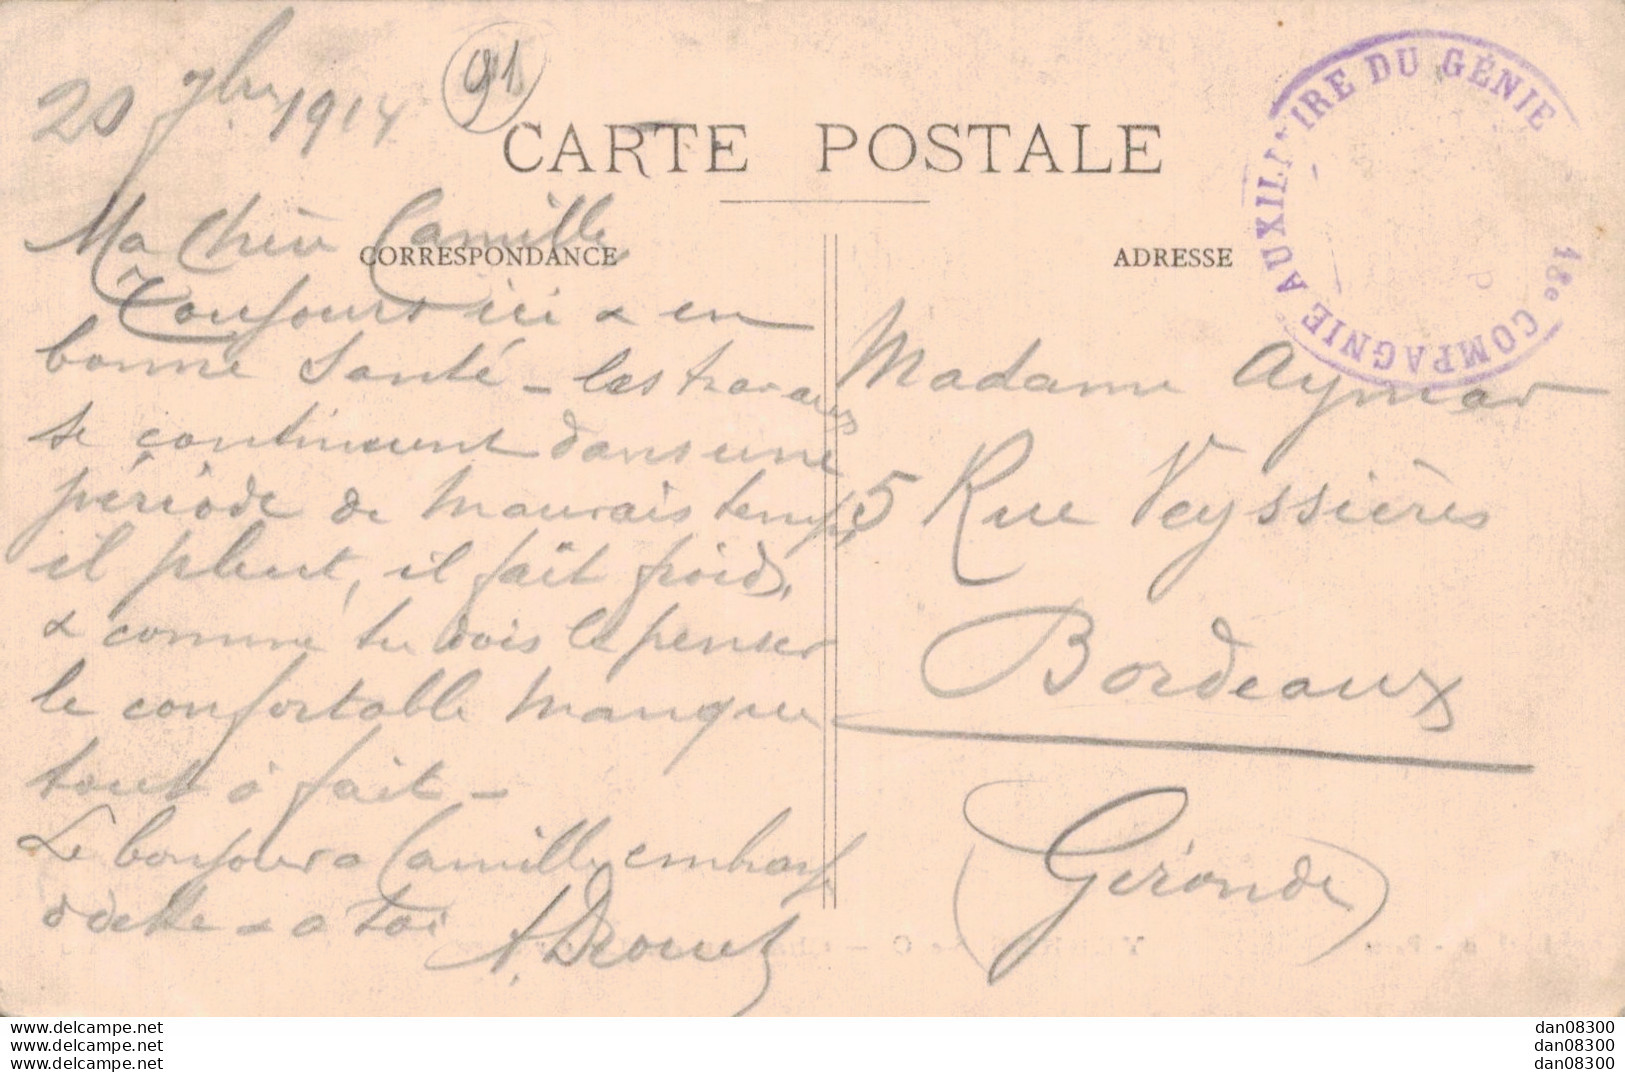 20 7bre 1914
91
CARTE POSTALE
CORRESPONDANCE
ADRESSE
18e COMPAGNIE AUXILIAIRE DU GÉNIE
Ma Chère Camille
Toujours ici & en
bonne santé - les travaux
se continuent dans une
période de mauvais temps,
il pleut, il fait froid,
& comme tu dois le penser
le confortable manque
tout à fait -
Le bonjour a Camille embrasse
Odette & a toi
A. Drouet
Madame Aymar
5 Rue Veyssières
Bordeaux
(Gironde)
www.delcampe.net
www.delcampe.net
www.delcampe.net
dan08300
dan08300
dan08300